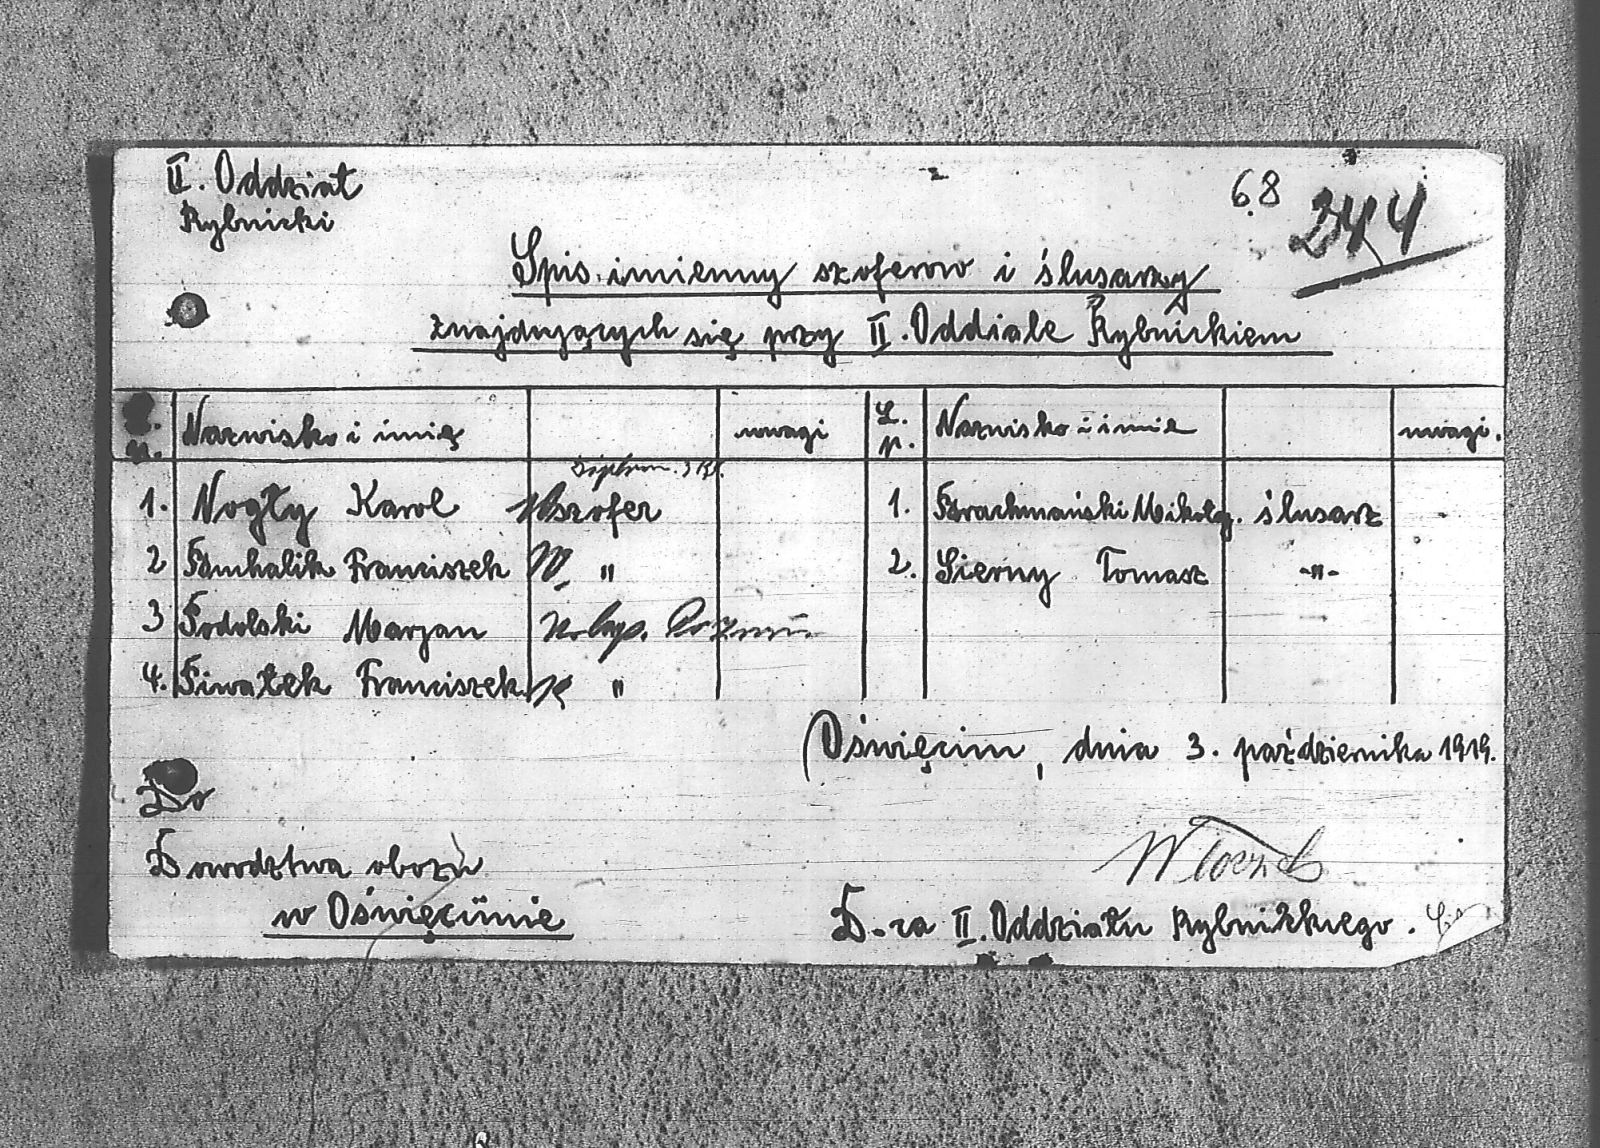 II. Oddział
Rybnicki
68
244
Spis imienny szoferow i ślusarzy
znajdujących się przy II. Oddziale Rybnickiem
L. p. Nazwisko i imię uwagi L. p. Nazwisko i imie uwagi.
1. Nogły Karol szofer 1. Brachmański Mikołaj. ślusarz
2 Franciszek " 2. Sierny Tomasz -"-
3 Podolski Marjan
4. Piwatek Franciszek "
Oświęcim, dnia 3. października 1919.
Do
Dowodztwa obozu
w Oświęcimie
D-ca II. Oddziału Rybnickiego.